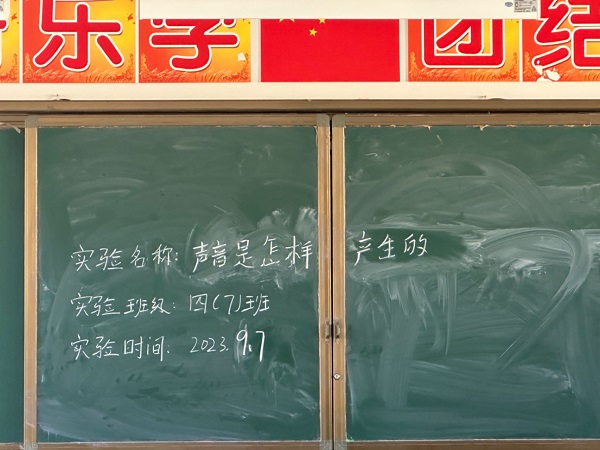 乐学 团结
实验名称: 声音是怎样产生的
实验班级: 四(7)班
实验时间: 2023.9.7